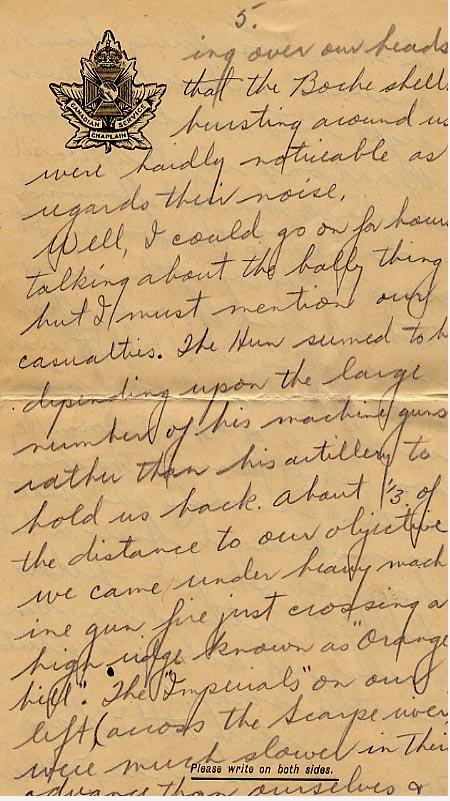 5.
CANADIAN SERVICE
CHAPLAIN
ing over our heads
that the Boche shell
bursting around us
were hardly noticable as
regards their noise.
Well, I could go on for hour
talking about the bally thing
but I must mention our
casualties. The Hun seemed to b
depending upon the large
number of his machine guns
rather than his artillery to
hold us back. About 1/3 of
the distance to our objective
we came under heavy mach
ine gun fire just crossing a
high ridge known as "Orange
hill". The "Imperials" on our
left (across the Scarpe river
were much slower in their
Please write on both sides.
advance than ourselves &